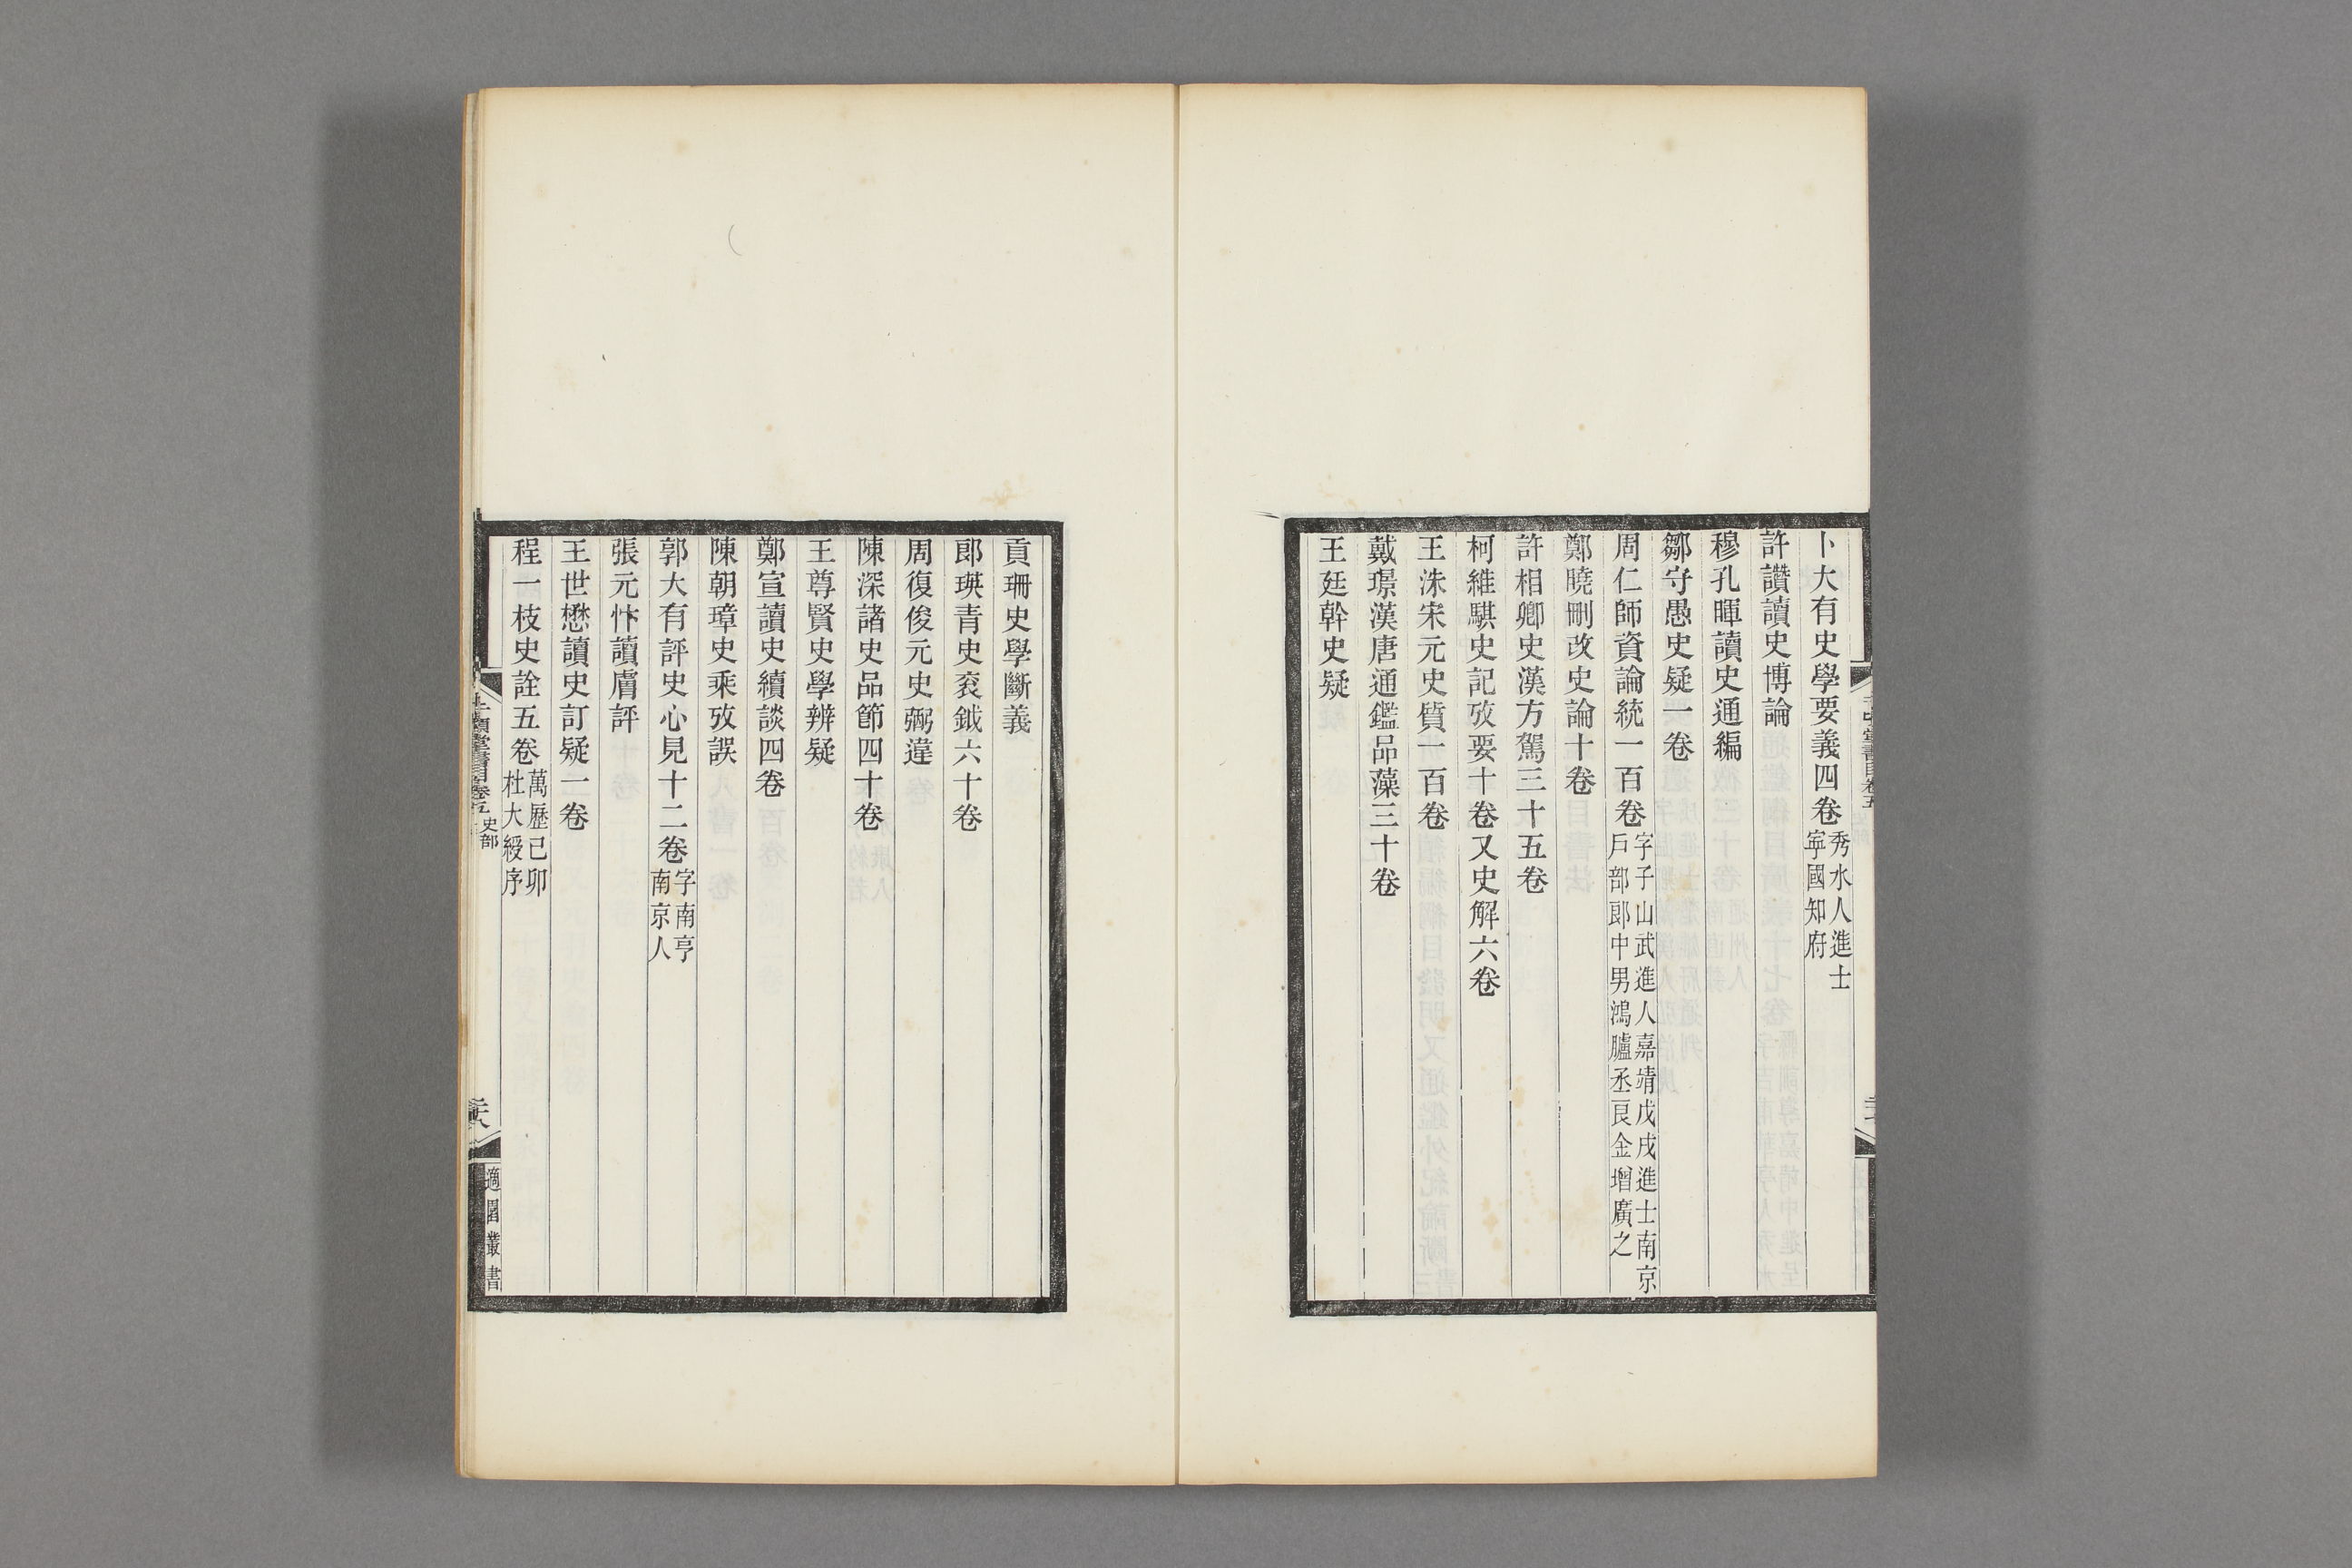 卜大有史學要義四卷秀水人進士寜國知府
許讚讀史博論
穆孔暉讀史通編
鄒守愚史疑一卷
周仁師資論統一百卷字子山武進人嘉靖戊戌進士南京戶部郎中男鴻臚丞良金增廣之
鄭曉刪改史論十卷
許相卿史漢方駕三十五卷
柯維騏史記攷要十卷又史解六卷
王洙宋元史質一百卷
戴璟漢唐通鑑品藻三十卷
王廷幹史疑
貢珊史學斷義
郎瑛青史袞鉞六十卷
周復俊元史弼違
陳深諸史品節四十卷
王尊賢史學辨疑
鄭宣讀史續談四卷
陳朝璋史乘攷誤
郭大有評史心見十二卷字南亨南京人
張元忭讀膚評
王世懋讀史訂疑一卷
程一枝史詮五卷萬歷已卯杜大綬序
千頃堂書目卷五 史部
適園叢書